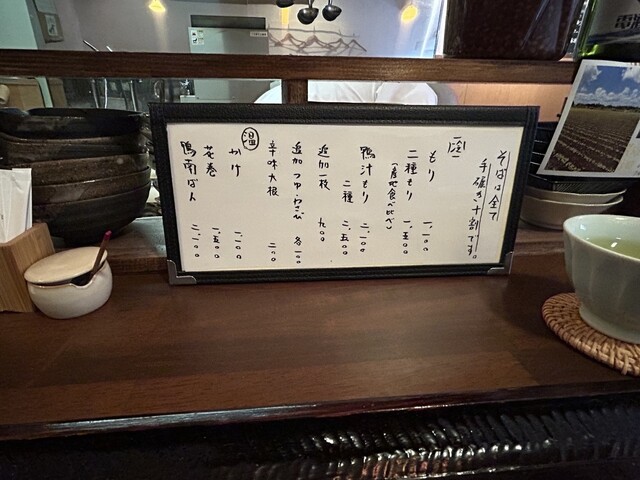 そばは全て
手碾き十割です。
冷
もり 一、一〇〇
二種もり 一、五〇〇
(産地食べ比べ)
鴨汁もり 二、一〇〇
二種 二、五〇〇
追加一枚 九〇〇
追加つゆ・わさび 各一〇〇
辛味大根 二〇〇
温
かけ 一、一〇〇
花巻 一、五〇〇
鴨南ばん 二、一〇〇